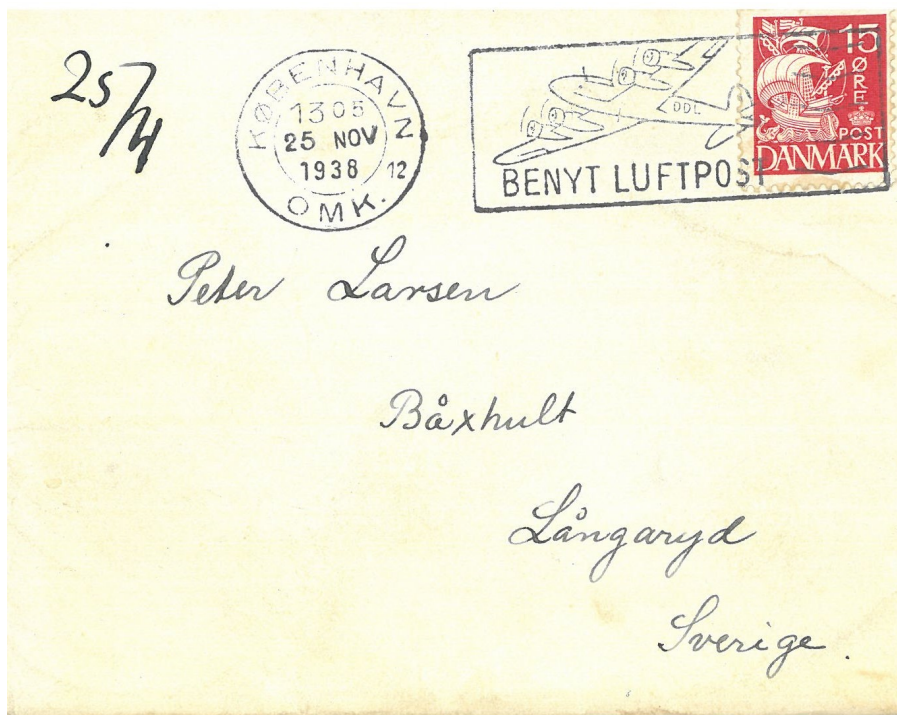 25/4
KØBENHAVN
13 05
25 NOV
1938 12
OMK.
DDL
BENYT LUFTPOST
15
ØRE
POST
DANMARK
Peter Larsen
Båxhult
Långaryd
Sverige.